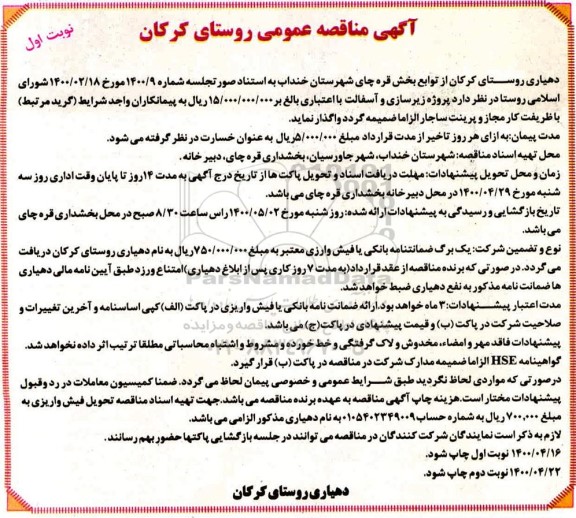 آگهی مناقصه عمومی روستای کرکان
نوبت اول
دهیاری روستای کرکان از توابع بخش قره چای شهرستان خنداب به استناد صورتجلسه شماره ۱۴۰۰/۹ مورخ ۱۴۰۰/۰۲/۱۸ شورای
اسلامی روستا در نظر دارد پروژه زیرسازی و آسفالت با اعتباری بالغ بر ۱۵/۰۰۰/۰۰۰/۰۰۰ ریال به پیمانکاران واجد شرایط (گرید مرتبط)
با ظرفیت کار مجاز و پرینت ساجار الزاما ضمیمه گردد واگذار نماید.
مدت پیمان: به ازای هر روز تاخیر از مدت قرارداد مبلغ ۵/۰۰۰/۰۰۰ ریال به عنوان خسارت در نظر گرفته می شود.
محل تهیه اسناد مناقصه: شهرستان خنداب، شهر جاورسیان، بخشداری قره چای، دبیر خانه.
زمان و محل تحویل پیشنهادات: مهلت دریافت اسناد و تحویل پاکت ها از تاریخ درج آگهی به مدت ۱۴ روز تا پایان وقت اداری روز سه
شنبه مورخ ۱۴۰۰/۰۴/۲۹ در محل دبیر خانه بخشداری قره چای می باشد.
تاریخ بازگشایی و رسیدگی به پیشنهادات ارائه شده: روز شنبه مورخ ۱۴۰۰/۰۵/۰۲ راس ساعت ۸/۳۰ صبح در محل بخشداری قره چای
می باشد.
نوع و تضمین شرکت: یک برگ ضمانتنامه بانکی یا فیش وارزی معتبر به مبلغ ۷۵۰/۰۰۰/۰۰۰ ریال به نام دهیاری روستای کرکان دریافت
می گردد. در صورتی که برنده مناقصه از عقد قرارداد (به مدت ۷ روز کاری پس از ابلاغ دهیاری) امتناع ورزد طبق آیین نامه مالی دهیاری
ها ضمانت نامه مذکور به نفع دهیاری ضبط خواهد شد.
مدت اعتبار پیشنهادات: ۳ ماه خواهد بود. ارائه ضمانت نامه بانکی یا فیش واریزی در پاکت (الف) کپی اساسنامه و آخرین تغییرات و
صلاحیت شرکت در پاکت (ب) و قیمت پیشنهادی در پاکت (ج) می باشد.
پیشنهادات فاقد مهر و امضاء، مخدوش و لاک گرفتگی و خط خورده و مشروط و اشتباه محاسباتی مطلقا ترتیب اثر داده نخواهد شد.
گواهینامه HSE الزاما ضمیمه مدارک شرکت در مناقصه در پاکت (ب) قرار گیرد.
درصورتی که مواردی لحاظ نگردید طبق شرایط عمومی و خصوصی پیمان لحاظ می گردد. ضمنا کمیسیون معاملات در رد و قبول
پیشنهادات مختار است. هزینه چاپ آگهی مناقصه به عهده برنده مناقصه می باشد. جهت تهیه اسناد مناقصه تحویل فیش واریزی به
مبلغ ۷۰۰,۰۰۰ ریال به شماره حساب ۰۱۰۵۴۰۲۳۴۹۰۰۹ به نام دهیاری مذکور الزامی می باشد.
لازم به ذکر است نمایندگان شرکت کنندگان در مناقصه می توانند در جلسه بازگشایی پاکتها حضور بهم رسانند.
۱۴۰۰/۰۴/۱۶ نوبت اول چاپ شود.
۱۴۰۰/۰۴/۲۲ نوبت دوم چاپ شود.
دهیاری روستای کرکان
ParsNamadData